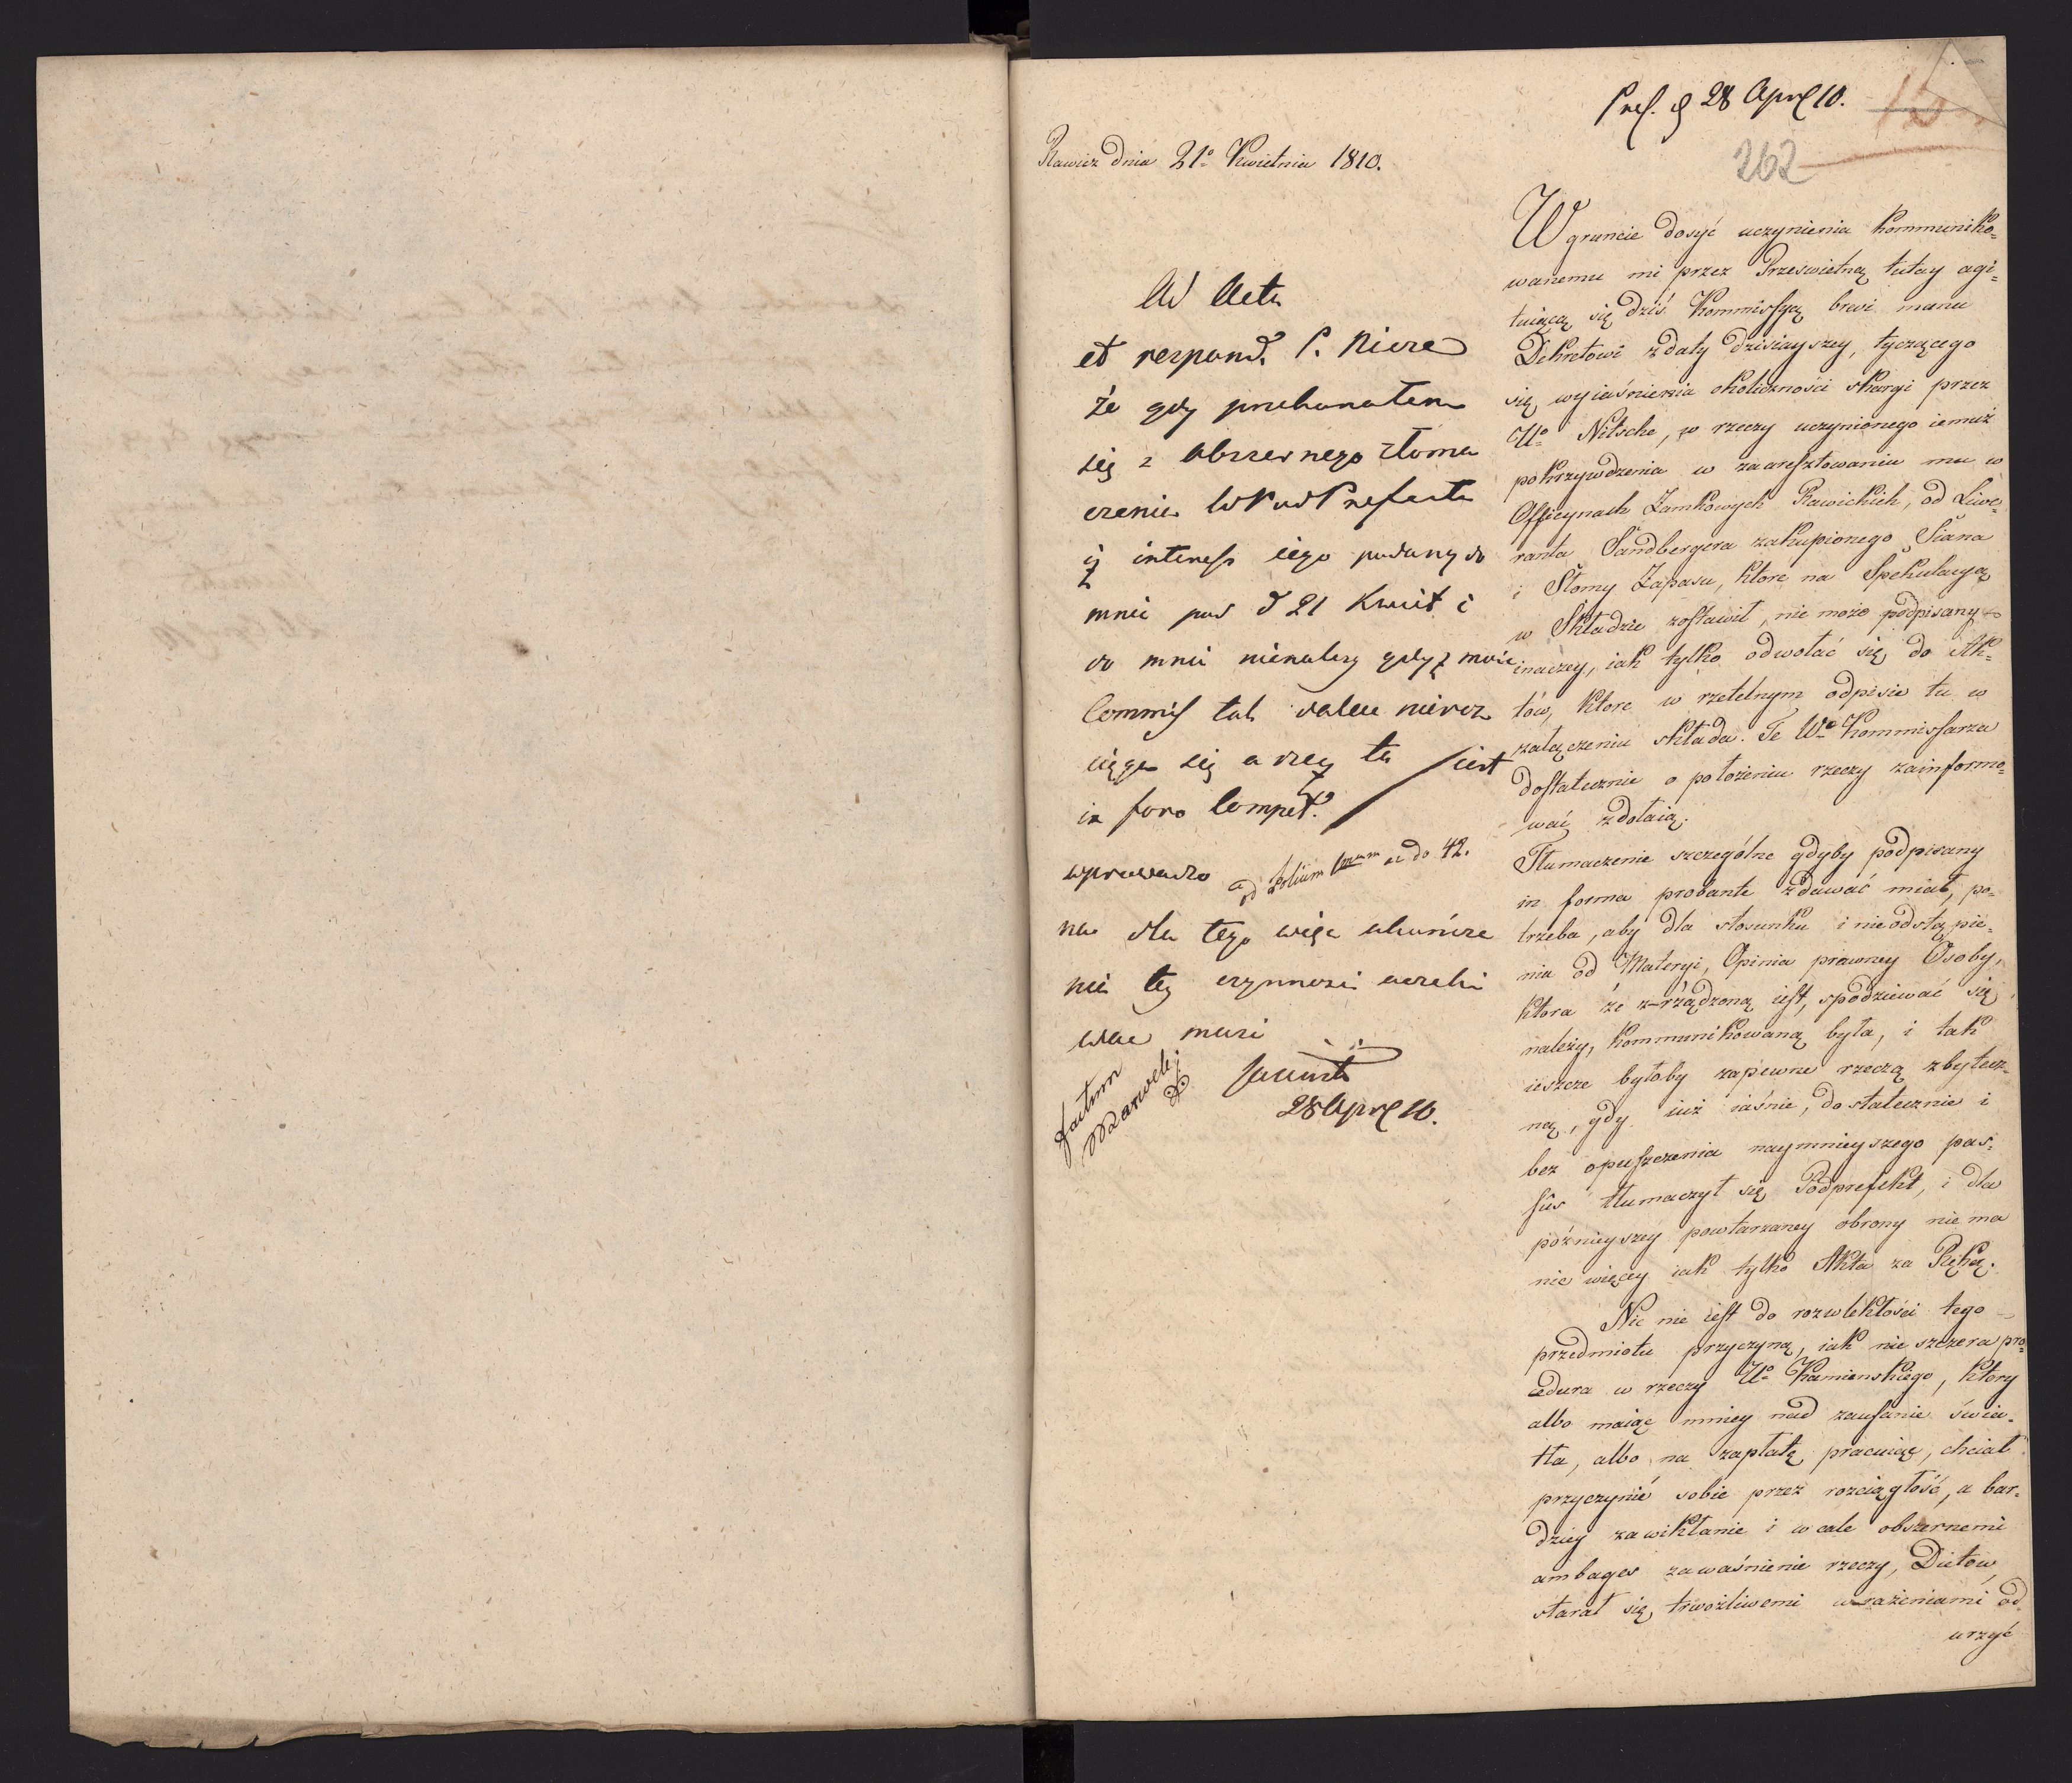 Pres. d 28 Apr 10.
262
Rawicz dnia 21o Kwietnia 1810.
Ad Acta
et respond. P.
że gdy przekonałem
się z obszernego tłoma
czenia Podprefekta
iż interess iego podany do
mnie pod d 21 Kwiet i
do mnie nienależy gdyż moie
Commis tak dalece nieroz
ciąga się a rzecz ta iest
in foro Compet.
wprowadzo
ad Folium 1mum ad do 42.
na dla tego więc ukończe
nie tey czynności
wać musi
28 Apr 10.
W gruncie dosyć uczynienia kommuniko=
wanemu mi przez Prześwietną tutay agi=
tuiącą się dziś Kommissyą brevi manu
Dekretowi z daty dzisiayszey, tyczącego
się wyiaśnienia okoliczności skargi przez
Uo Nitsche, w rzeczy uczynionego iemuż
pokrzywdzenia w zaaresztowaniu mu w
Officynach Zamkowych Rawickich, od Liwe=
ranta Sandbergera zakupionego Siana
i Słomy Zapasu, ktore na Spekulacyą
w Składzie zostawił, nie może podpisany
inaczey, iak tylko odwołać się do Ak=
tów, ktore w rzetelnym odpisie tu w
załączeniu składa. Te Wo Kommissarza
dostatecznie o położeniu rzeczy zainformo=
wać zdołaią.
Tłumaczenie szczególne gdyby podpisany
in forma probante zdawać miał, po=
trzeba, aby dla stosunku i nieodstąpie=
nia od Materyi, Opinia prawney Osoby,
ktora że zrządzoną iest, spodziewać się
należy, kommunikowaną była, i tak
ieszcze byłoby zapewne rzeczą zbytecz=
ną, gdy iuż iaśnie, dostatecznie i
bez opuszczenia naymnieyszego pas=
sus tłumaczył się Podprefekt, i dla
poźnieyszey powtarzaney obrony nie ma
nic więcey iak tylko Akta za Ręką.
Nic nie iest do rozwlekłości tego
przedmiotu przyczyną, iak nie szczera pro=
cedura w rzeczy Uo Kamienskiego, ktory
albo maiąc mniey nad zaufanie świa=
tła, albo na zapłatę pracuiąc, chciał
przyczynić sobie przez rozciągłość, a bar=
dziey zawikłanie i wcale obszernemi
ambages zawaśnienie rzeczy, Dietow,
starał się, trwożliwemi wrażeniami od
urzyć